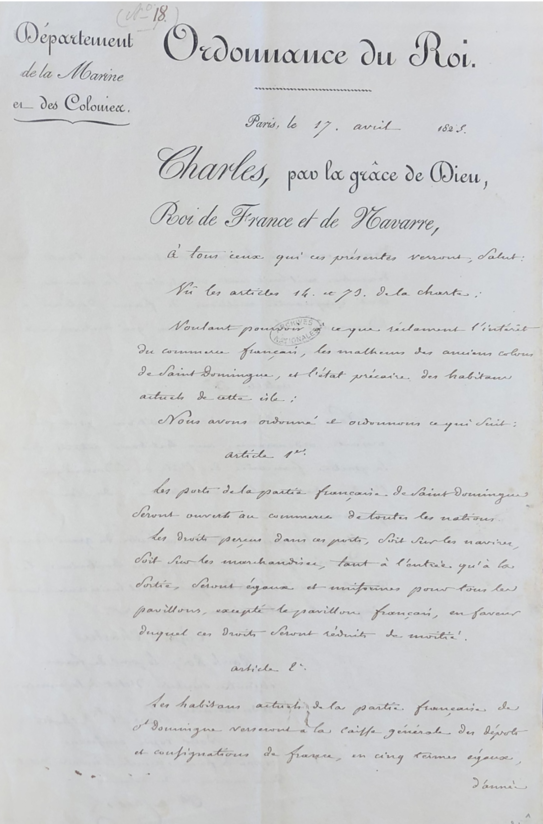 (N° 18.)
Département
de la Marine
et des Colonies.
Ordonnance du Roi.
Paris, le 17. avril 1825.
Charles, par la grâce de Dieu,
Roi de France et de Navarre,
À tous ceux qui ces présentes verront, Salut:
Vû les articles 14. et 73. de la charte;
Voulant pourvoir à ce que réclament l'intérêt
ARCHIVES NATIONALES
du commerce français, les malheurs des anciens colons
de Saint Domingue, et l'état précaire des habitans
actuels de cette isle;
Nous avons ordonné et ordonnons ce qui Suit:
article 1er.
Les ports de la partie française de Saint Domingue
Seront ouverts au commerce de toutes les nations
Les droits perçus dans ces ports, Soit Sur les navires,
Soit Sur les marchandises, tant à l'entrée qu'à la
Sortie, Seront égaux et uniformes pour tous les
pavillons, excepté le pavillon français, en faveur
duquel ces droits Seront réduits de moitié.
article 2e.
Les habitans actuels de la partie française de
St Domingue verseront à la caisse générale des dépôts
et consignations de france, en cinq termes égaux,
d'année